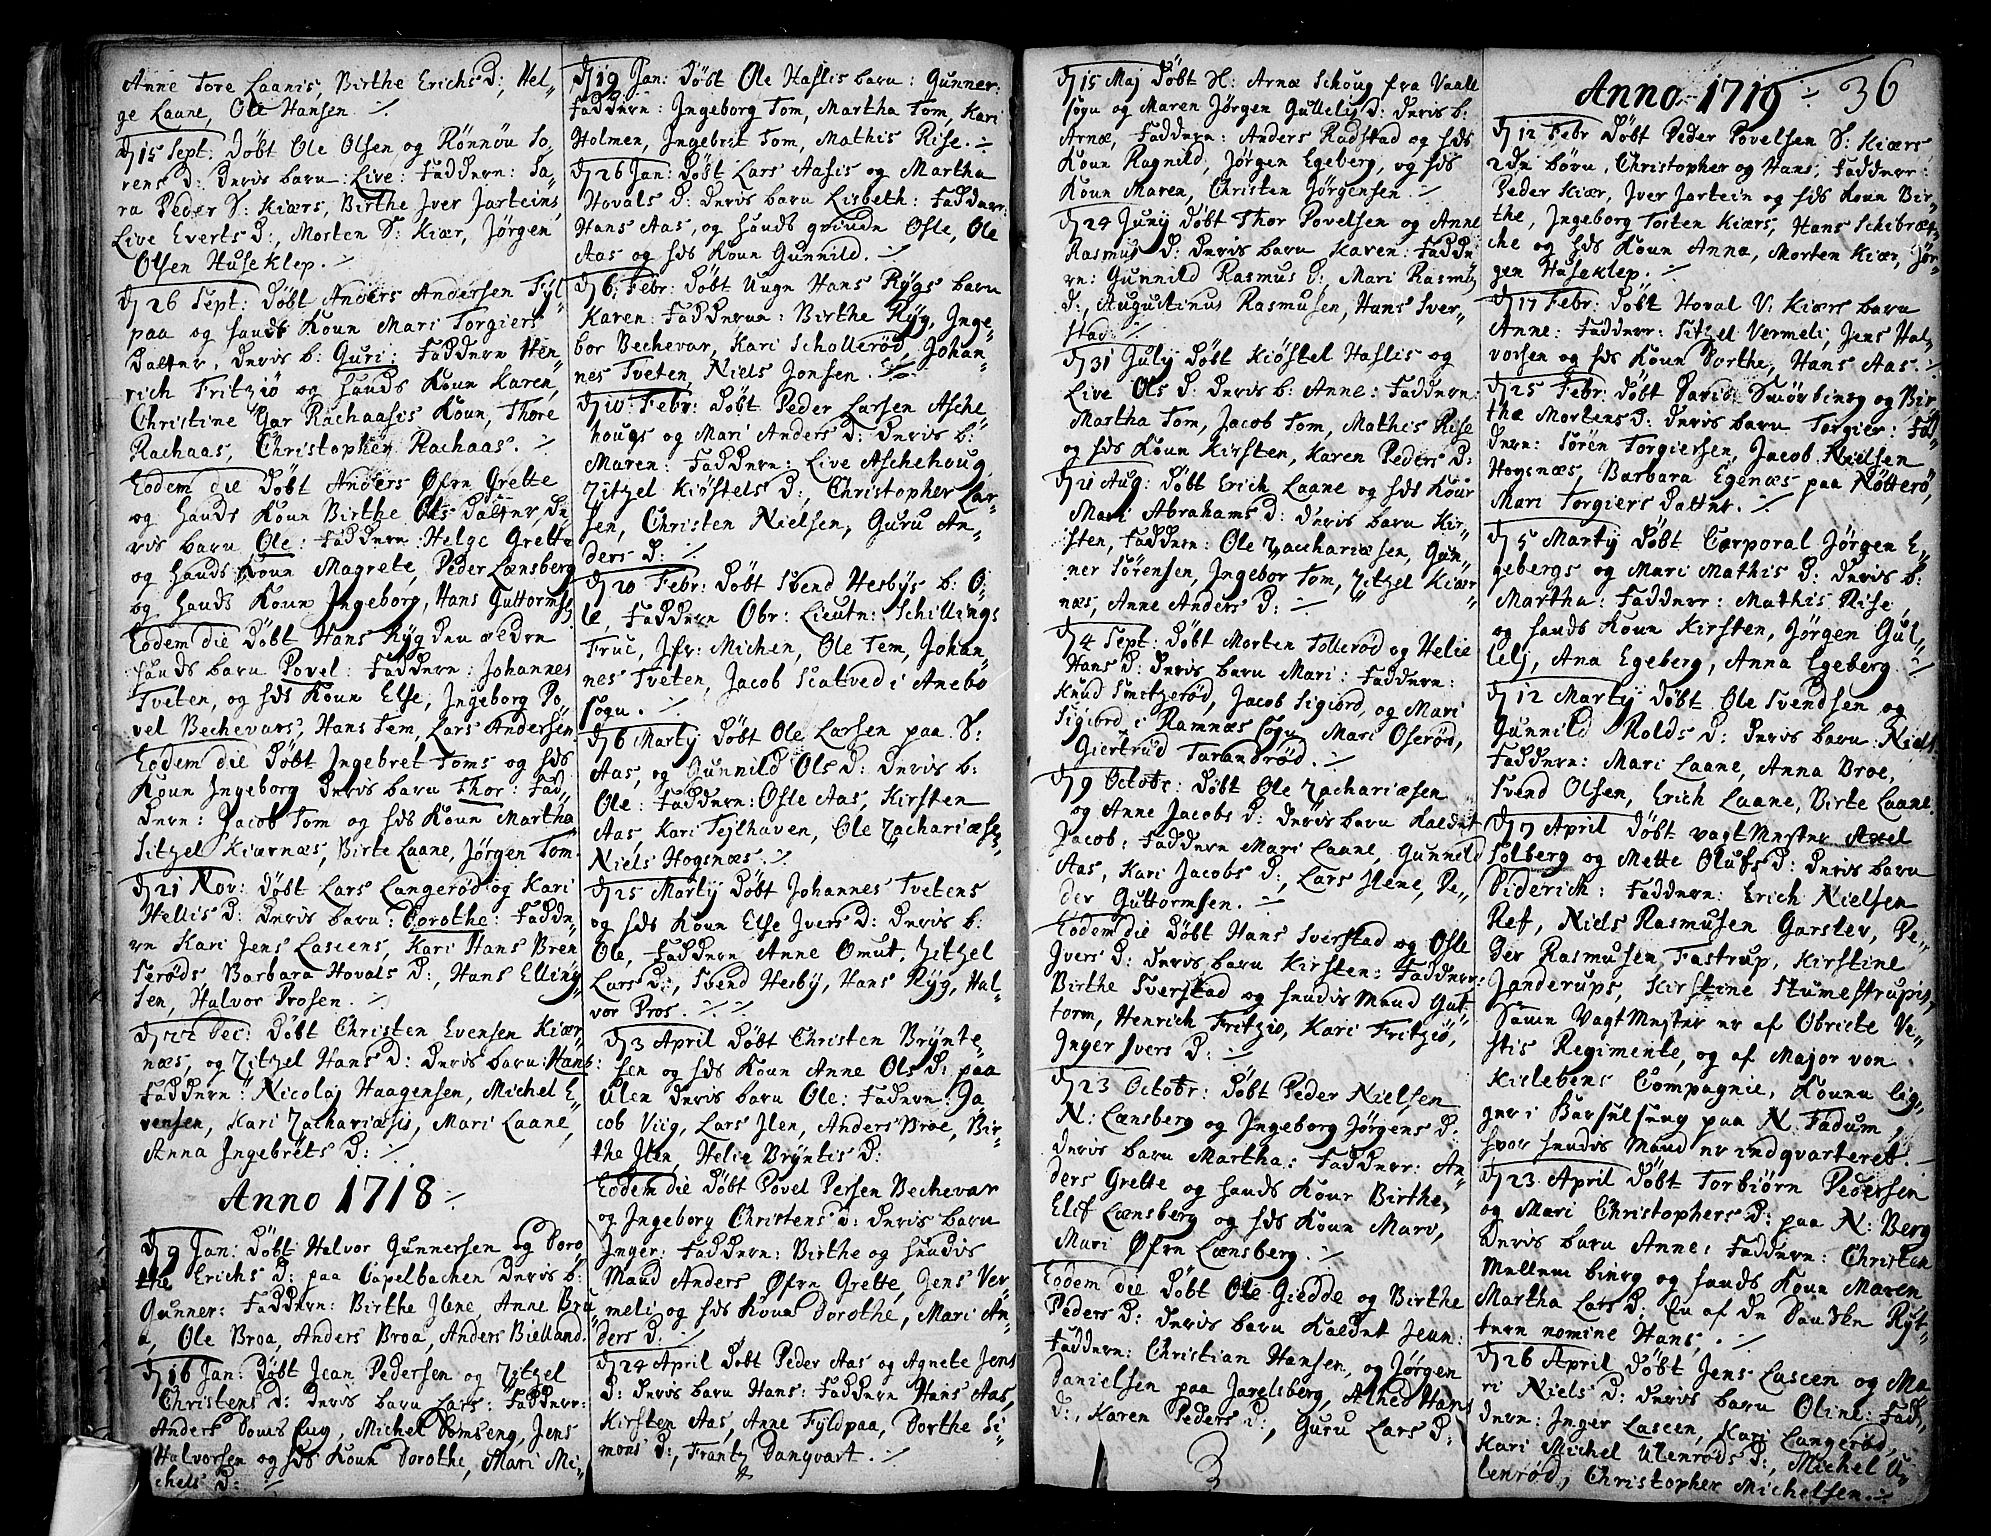 Anne Tore Laanis, Birthe Erichs D:, Hel-
ge Laane, Ole Hansen ./.
D 15 Sept: Døbt Ole Olsen, og Rønnou So-
rens D: deris barn Live: Fadderne: Sa-
ra Peder S: Kiærs, Birthe Jver Jarteins,
Live Everts D:, Morten S: Kiær, Jørgen
Olsen Huseklep. ./.
D 26 Sept: Døbt Anders Andersen Fyl-
paa og hands Koun Mari Torgiers
Datter, deris b: Guri: Fadderne Hen-
rich Fritziø og hands Koun Karen,
Christine Gar Rachaasis Koun, Thore
Rachaas, Christopher Rachaas. ./.
Eodem die Døbt Anders Øfre Grette
og hands Koun Birthe Ols Datter, de-
ris barn Ole: Fadderne: Helge Grette
og hands Koun Magrete, Peder Lænsberg
og hands Koun Ingeborg, Hans Guttorms
Eodem die Døbt Hans Ryg den ældre
hands barn Povel: Fadderne: Johannes
Tveten, og hds Koun Else, Ingeborg Po-
vel Bechevars, Hans Tem, Lars Andersen
Eodem die Døbt Ingebret Toms og hds
Koun Ingeborg deris barn Thor: Fad-
derne: Jacob Tom og hds Koun Martha,
Sitzel Kiærnæs, Birte Laane, Jørgen Tom.
D 21 Nov: Døbt Lars Langerød og Kari
Hellis D: deris barn: Dorothe: Fadde-
rn Kari Jens Lascens, Kari Hans Bren
Serøds, Barbara Hovals D:, Hans Elling-
sen, Halvor Prosen. ./.
D 22 Dec: Døbt Christen Evensen Kiær-
næs, og Zitzel Hans D: deris barn: Hans:
Fadderne: Nicolaj Haagensen, Michel E-
vensen, Kari Zachariæsis, Mari Laane,
Anna Ingebrets D: ./.
Anno 1718 ./.
D 9 Jan: Døbt Halvor Gunnersen og Doro-
the Erichs D: paa Capelbachen deris b:
Gunner: Fadderne: Birthe Ilene, Anne Bru
a, Ole Broa, Anders Broa, Anders Bielland.
D 16 Jan: Døbt Jean Pedersen og Zitzel
Christens D: deris barn Lars: Fadderne:
Anders, Michel Domseng, Jens
Halvorsen og hds Koun Dorothe, Mari Mi-
chels D: ./.
D 19 Jan: Døbt Ole Haslis barn: Gunner:
Fadderne: Ingeborg Tom, Martha Tom, Kari
Holmen, Ingebret Tom, Mathis Rise. ./.
D 26 Jan: Døbt Lars Aasis og Martha
Hovals D: deris barn Lisbeth: Fadderne:
Hans Aas, og hands qvinde Osle, Ole
Aas og hds Koun Gunnild. ./.
D 6 Febr: Døbt Unge Hans Rygs barn
Karen: Fadderne: Birthe Ryg, Inge-
bor Bechevar, Kari Schollerød, Johan-
nes Tveten, Niels Jonsen. ./.
D 10: Febr: Døbt Peder Larsen Asche-
hougs og Mari Anders D: deris b:
Maren: Fadderne: Live Aschehoug,
Zitzel Kiøstels D:, Christopher Lar-
sen, Christen Nielsen, Guru An-
ders D: ./.
D 20 Febr: Døbt Svend Hesbys b: O-
le, Fadderne Obr: Lieutn: Schillings
Frue, Jfr: Michen, Ole Tem, Johan-
nes Tveten, Jacob Siatved i Anebo
Sogn. ./.
D 6 Marty Døbt Ole Larsen paa S:
Aas, og Gunnild Ols D: deris b:
Ole: Fadderne: Osle Aas, Kirsten
Aas, Kari Tejlhaven, Ole Zachariæsen,
Niels Hogsnæs. ./.
D 25 Marty Døbt Johannes Tvetens
og hds Koun Else Jvers D: deris b:
Ole, Fadderne Anne Omut, Zitzel
Lars D:, Svend Hesby, Hans Ryg, Hal-
vor Pros. ./. ./.
D 3 April Døbt Christen Brynte-
sen og hds Koun Anne Ols D: paa
Ulen deris barn Ole: Faderne: Ja
cob Viig, Lars Ilen, Anders Broe, Bir-
the Ilen, Helie Bryntis D:
Eodem die Døbt Povel Persen Bechevar
og Ingeborg Christens D: deris barn
Inger: Fadderne: Birthe og hendis
Mand Anders Øfre Grette, Jens Ver-
meli og hds Koun Dorothe, Mari An-
ders D: ./.
D 24 April Døbt Peder Aas og Agnete Jens
D: deris barn Hans: Fadderne Hans Aas,
Kirsten Aas, Anne Fyldpaa, Dorthe Si-
mons D:, Frantz Danqvart. ./.
D 15 Maj Døbt H: Arnæ Schoug fra Vaale
Sogn og Maren Jørgen Gullelis D: deris b:
Arnæ, Fadderne: Anders Radstad og hds
Koun Ragnild, Jørgen Egeberg, og hds
Koun Maren, Christen Jørgensen. ./.
D 24 Juny Døbt Thor Povelsen og Anne
Rasmus D: deris barn Karen: Fadde-
rn: Gunnild Rasmus D:, Mari Rasmus
D:, Augustinus Rasmusen, Hans Sver-
stad: ./.
D 31 July Døbt Kiøstel Haslis og
Live Ols D: deris b: Anne: Fadderne:
Martha Tom, Jacob Tom, Mathis Rise
og hds Koun Kirsten, Karen Peders D:
D 21 Aug: Døbt Erich Laane og hds Koun
Mari Abrahams D: deris barn Kir-
sten, Fadderne: Ole Zachariæsen, Gun-
ner Sørensen, Ingebor Tom, Zitzel Kiær-
næs, Anne Anders D: ./.
D 4 Sept: Døbt Morten Tollerød og Helie
Hans D: deris barn Mari: Fadderne:
Knud Smitzerød, Jacob Sigiord, og Mari
Sigiord i Ramnæs Sogn, Mari Oserød,
Giertrud Tarandrød. ./.
D 9 Octobr: Døbt Ole Zachariæsen
og Anne Jacobs D: deris barn Kaldet
Jacob: Fadderne Mari Laane, Gunnild
Aas, Kari Jacobs D:, Lars Ilene, Pe-
der Guttormsen. ./.
Eodem die Døbt Hans Sverstad og Osle
Jvers D: deris barn Kirsten: Fadderne:
Birthe Sverstad og hendis Mand Gut-
torm, Henrich Fritziø, Kari Fritziø,
Inger Jvers D: ./.
D 23 Octobr: Døbt Peder Nielsen
N: Lænsberg og Ingeborg Jørgens D:
deris barn Martha: Fadderne: An-
ders Grette og hands Koun Birthe,
Elef Lænsberg og hds Koun Marv,
Mari Øfre Lænsberg. ./.
Eodem die Døbt Ole Giedde og Birthe
Peders D: deris barn Kaldet Jean:
Fadderne: Christian Hansen, og Jørgen
Danielsen paa Jarelsberg, Alhed Hans
D:, Karen Peders D:, Guru Lars D:
3
Anno 1719 ./. 36
D 12 Febr Døbt Peder Povelsen S: Kiærs
2de børn, Christopher og Hans, Fadderne:
Peder Kiær, Jver Jartein og hds Koun Bir-
the, Ingeborg Torten Kiærs, Hans Schibræt-
che og hds Koun Anna, Morten Kiær, Jør-
gen Huseklep. ./.
D 17 Febr: Døbt Hoval V: Kiærs barn
Anne: Fadderne: Sitzel Vermeli, Jens Hal-
vorsen og hds Koun Dorthe, Hans Aas. ./.
D 25 Febr: Døbt David Smørbierg og Bir-
the Mortens D: deris barn Torgier: Fad-
derne: Søren Torgiersen, Jacob Nielsen
Hogsnæs, Barbara Egenæs paa Nøtterø,
Mari Torgiers Datter. ./.
D 5 Marty Døbt Carporal Jørgen E-
gebergs og Mari Mathis D: deris b:
Martha: Fadderne: Mathis Rise,
og hands Koun Kirsten, Jørgen Gul-
lelj, Ana Egeberg, Anna Egeberg. ./.
D 12 Marty Døbt Ole Svendsen og
Gunnild Rolds D: deris barn: Niels:
Fadderne: Mari Laane, Anna Broe,
Svend Olsen, Erich Laane, Birte Laane.
D 7 April Døbt vagtMester Axel
Solberg og Mette Olufs D: deris barn
Diderich: Fadderne: Erich Nielsen
Ref, Niels Rasmusen Garslev, Pe-
der Rasmusen Fastrup, Kirstine
Janderups, Kirstine Stumestrupis,
Samme VagtMester er af Obriste Ve-
stis Regimente, og af Major von
Kielebens Compagnie, Konen lig-
ger i Barselseng paa N. Fadum,
hvor hendis Mand er indqvarteret. ./.
D 23 April Døbt Torbiørn Pedersen
og Mari Christophers D: paa N: Berg
deris barn Anne: Fadderne: Christen
Mellem bierg og hands Koun Maren
Martha Lars D: En af de Danske Ryt-
tere nomine Hans. ./.
D 26 April Døbt Jens Lascen og Ma-
ri Niels D: deris barn Oline: Fad-
derne: Inger Lascen, Kari Langerød,
Kari Michel Ulenrøds D:, Michel U-
lenrød, Christopher Michelsen. ./.